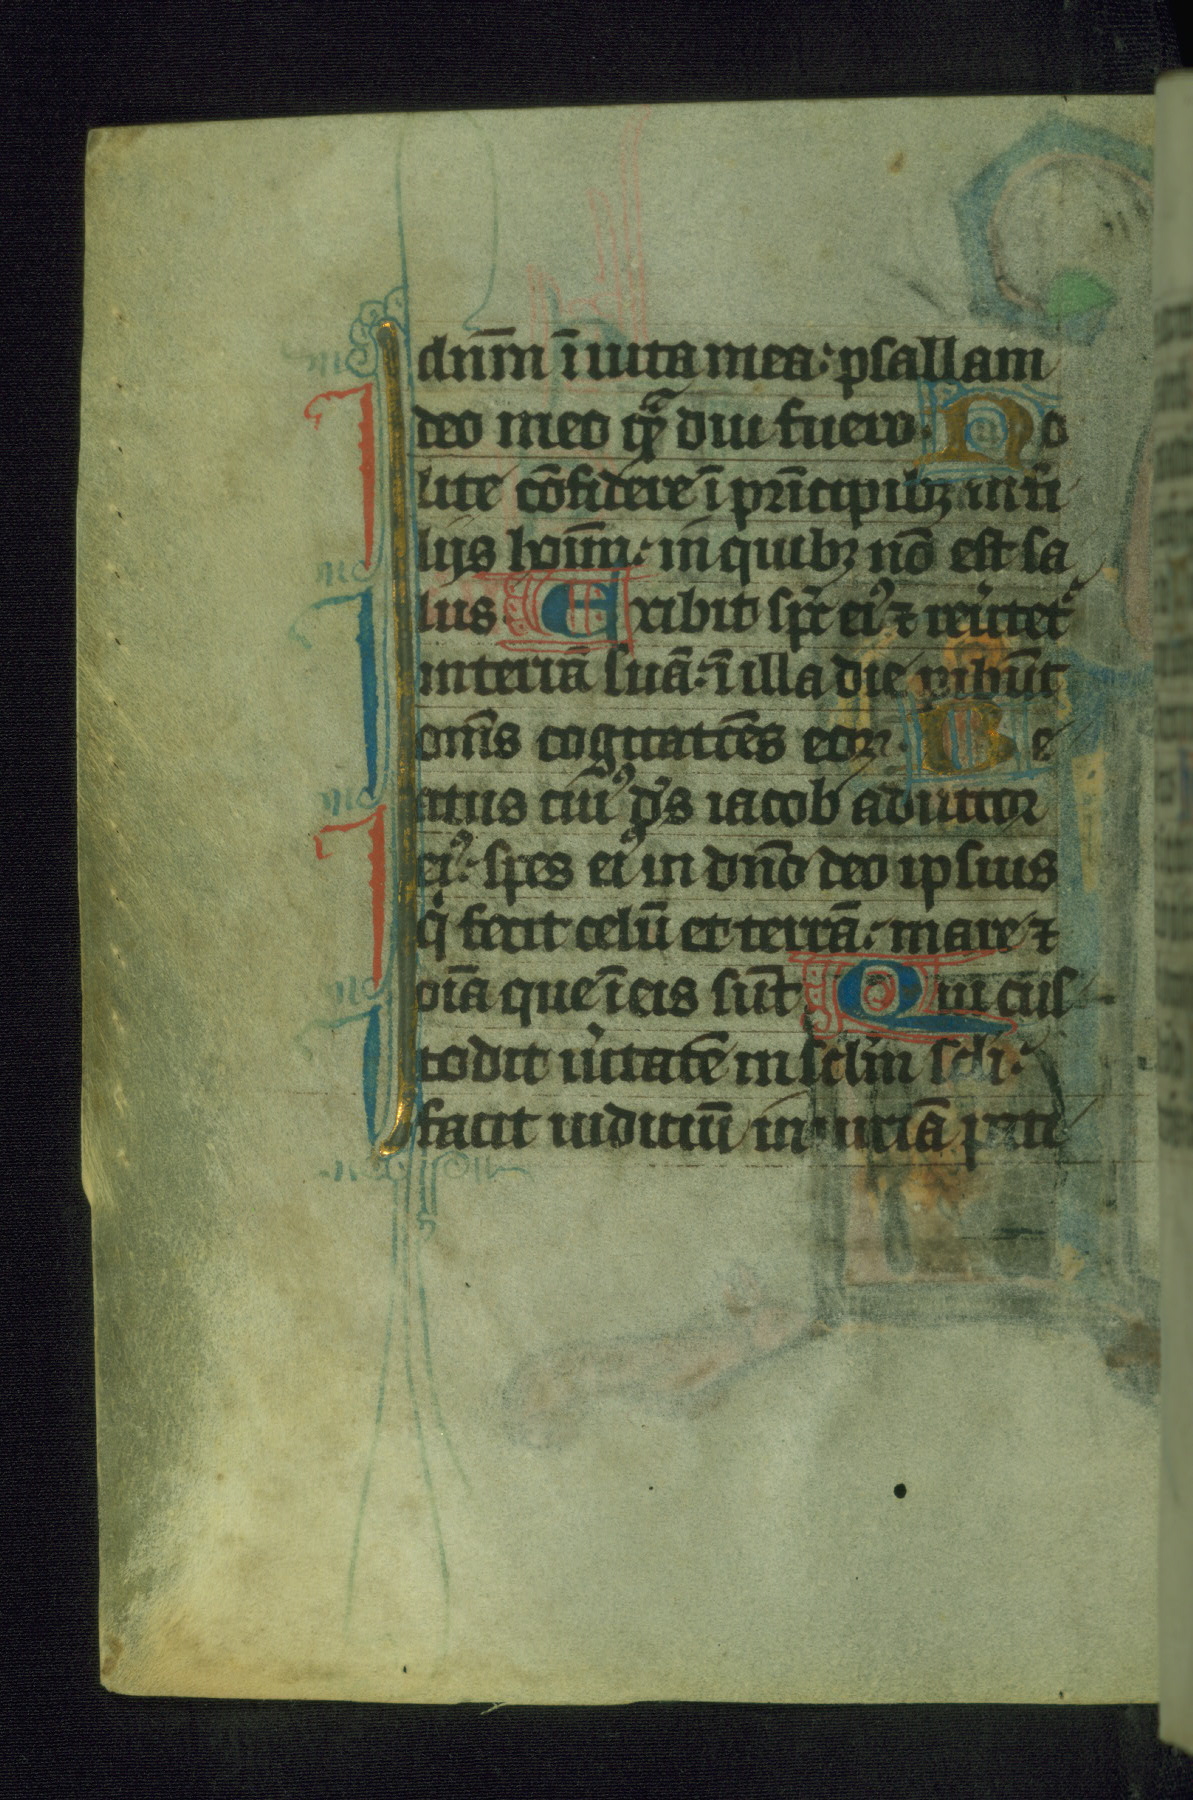 dnm̄ ī uita mea: psallam
deo meo qᷓ diu fuero. No
lite cōfidere ī prīcipibꝫ in fi
lijs hoīm: in quibꝫ nō est sa
lus Exibit sp̄c eiꝰ ⁊ reu̍tet᷑
in terrā suā: ī illa die ꝑibūt
om̄s cogitatōes eoꝝ. Be
atus cuiꝰ dꝰs iacob adiutor
eiꝰ: spes eiꝰ in dn̄o deo ipsius
qͥ fecit celū et terrā: mare ⁊
oīa que ī eis sūt Qui cus
todit u̍itatē in sclm̄ scli.
facit iudiciū iniuriā pati